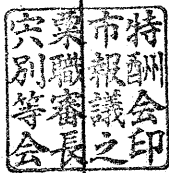 特酬会印
市報議之
業職審長
穴別等会